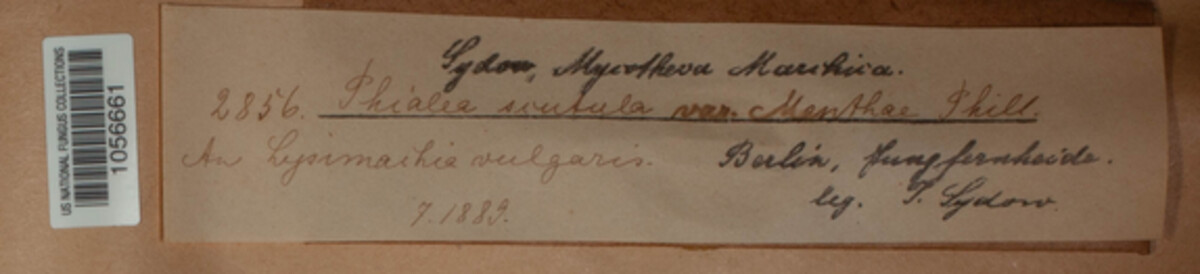 US NATIONAL FUNGUS COLLECTIONS
1056661
Sydow, Mycotheca Marchica.
2856. Phialea scutula var. Menthae Phill.
An Lysimachia vulgaris. Berlin, Jungfernheide.
7.1889. leg. P. Sydow.